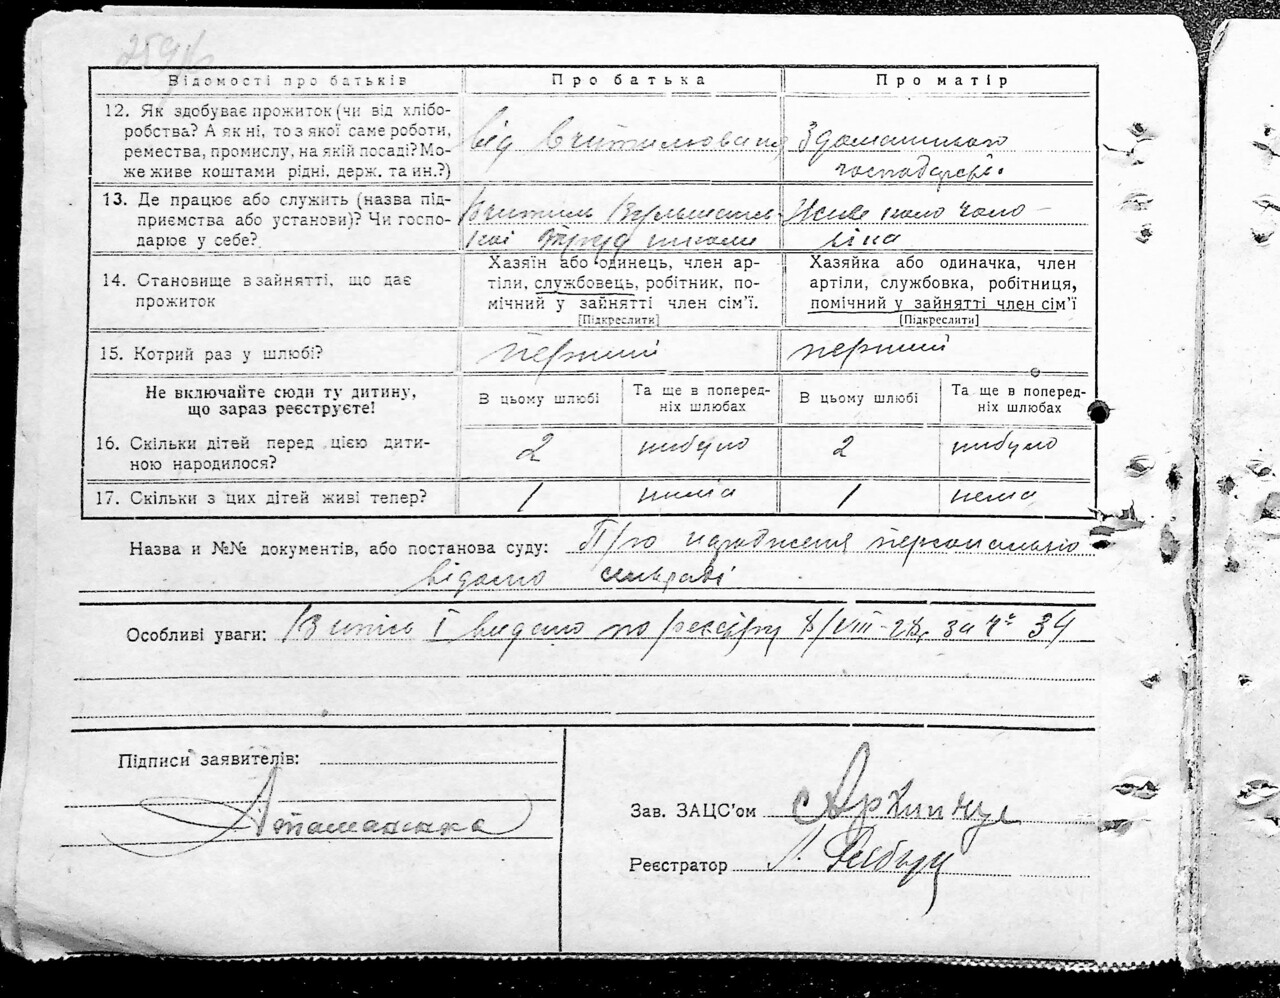 Відомості про батьків
Про батька
Про матір
12. Як здобуває прожиток (чи від хлібо-
робства? А як ні, то з якої саме роботи,
ремества, промислу, на якій посаді? Мо-
же живе коштами рідні, держ. та ин.?)
від вчителювання
З домашнього
господарства.
13. Де працює або служить (назва під-
приємства або установи)? Чи госпо-
дарює у себе?
Вчитель
кої Труд школи
Живе коло чоло-
віка
14. Становище в зайнятті, що дає
прожиток
Хазяїн або одинець, член ар-
тіли, службовець, робітник, по-
мічний у зайнятті член сім'ї.
[Підкреслити]
Хазяйка або одиначка, член
артіли, службовка, робітниця,
помічний у зайнятті член сім'ї
[Підкреслити]
15. Котрий раз у шлюбі?
перший
перший
Не включайте сюди ту дитину,
що зараз реєструєте!
В цьому шлюбі
Та ще в поперед-
ніх шлюбах
В цьому шлюбі
Та ще в поперед-
ніх шлюбах
16. Скільки дітей перед цією дити-
ною народилося?
2
небуло
2
небуло
17. Скільки з цих дітей живі тепер?
1
нема
1
нема
Назва и №№ документів, або постанова суду: Про народження персонально
відомо сельраді
Особливі уваги: Витіс І видано по реєстру 8/VIII-28р за № 34
Підписи заявителів:
Атаманенко
Зав. ЗАЦС'ом
Реєстратор